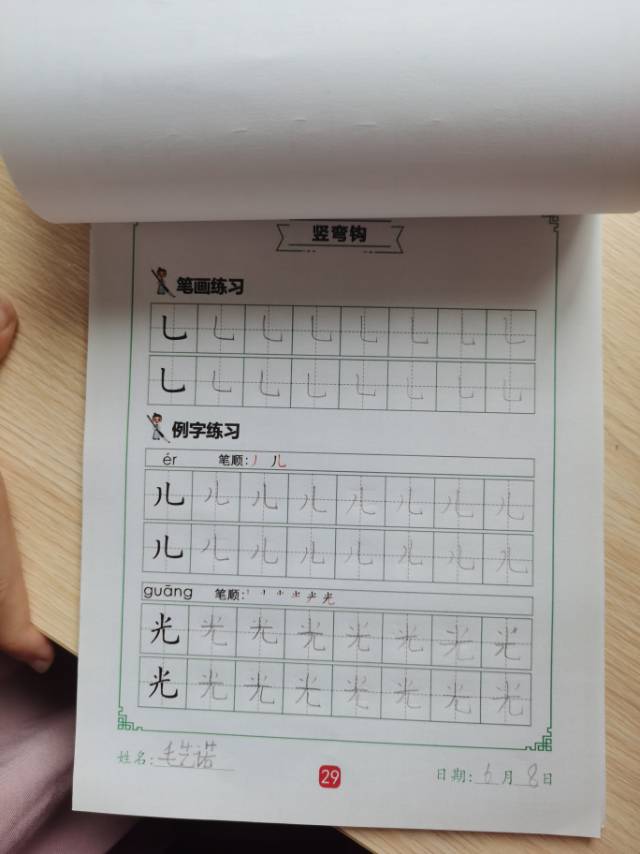 竖弯钩
笔画练习
乚 乚 乚 乚 乚 乚 乚 乚
乚 乚 乚 乚 乚 乚 乚 乚
例字练习
ér 笔顺：丿 儿
儿 儿 儿 儿 儿 儿 儿 儿
儿 儿 儿 儿 儿 儿 儿 儿
guāng 笔顺： 光
光 光 光 光 光 光 光 光
光 光 光 光 光 光 光 光
姓名：毛艺诺 29 日期：6月8日